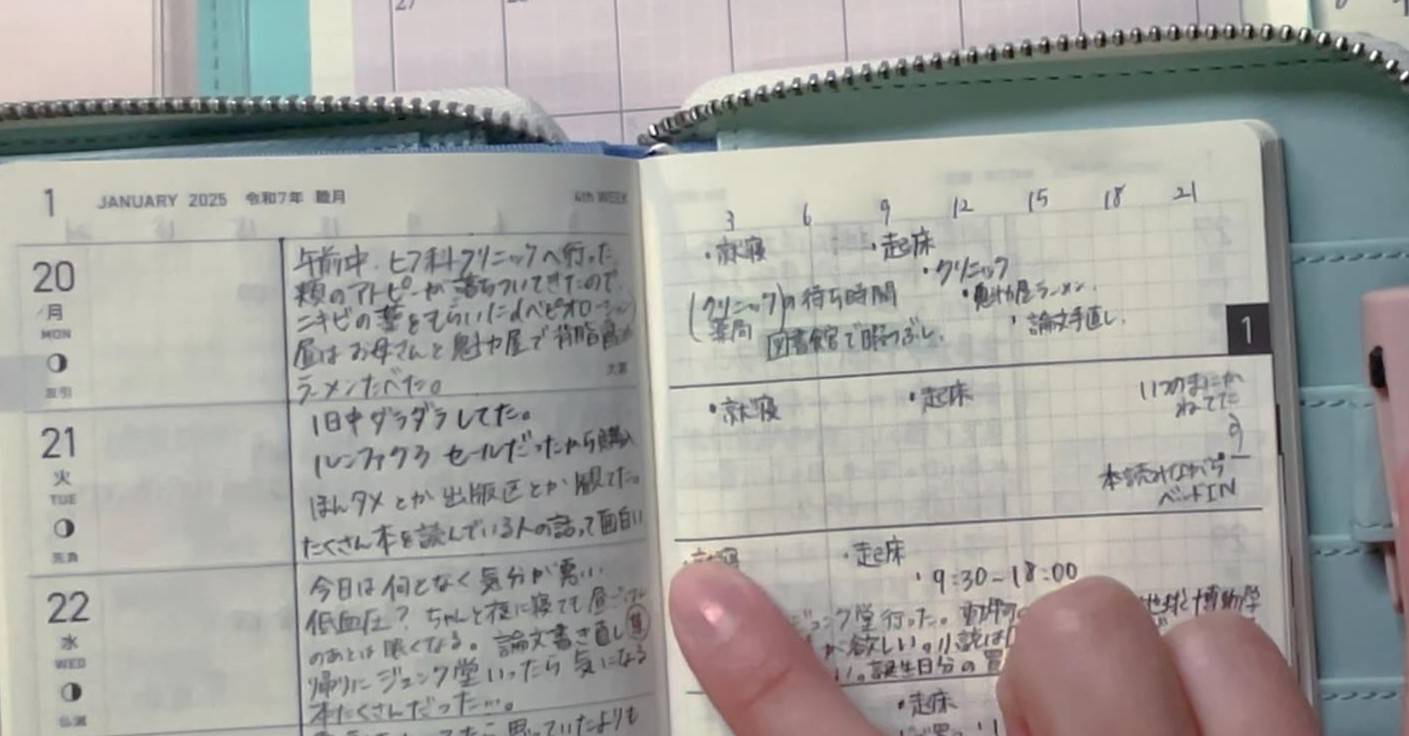 27
1 JANUARY 2025 令和7年 睦月 4th WEEK
20
月
MON
友引
午前中、ヒフ科クリニックへ行った
頬のアトピーが落ちついてきたので
ニキビの薬をもらいに(ベピオローション)
昼はお母さんと魁力屋で背脂
ラーメンたべた。
大寒
21
火
TUE
先負
1日中ダラダラしてた。
ルンファクろ セールだったから購入
ほんタメとか出版区とか観てた。
たくさん本を読んでいる人の話って面白い
22
水
WED
仏滅
今日は何となく気分が悪い
低血圧？ちゃんと夜に寝ても昼ごはん
のあとは眠くなる。論文書き直し
帰りにジュンク堂いったら気になる
本たくさんだった…。
思っていたよりも
3 6 9 12 15 18 21
・就寝 ・起床
・クリニック
(クリニック)の待ち時間 ・魁力屋ラーメン、
薬局 図書館で暇つぶし、 ・論文手直し、
1
・就寝 ・起床 いつのまにか
ねてた
本読みながら
ベッドIN
・起床
・9:30-18:00
ジュンク堂行った。動物の 地球と博物学
が欲しい。小説は
い。誕生日分の買
・起床